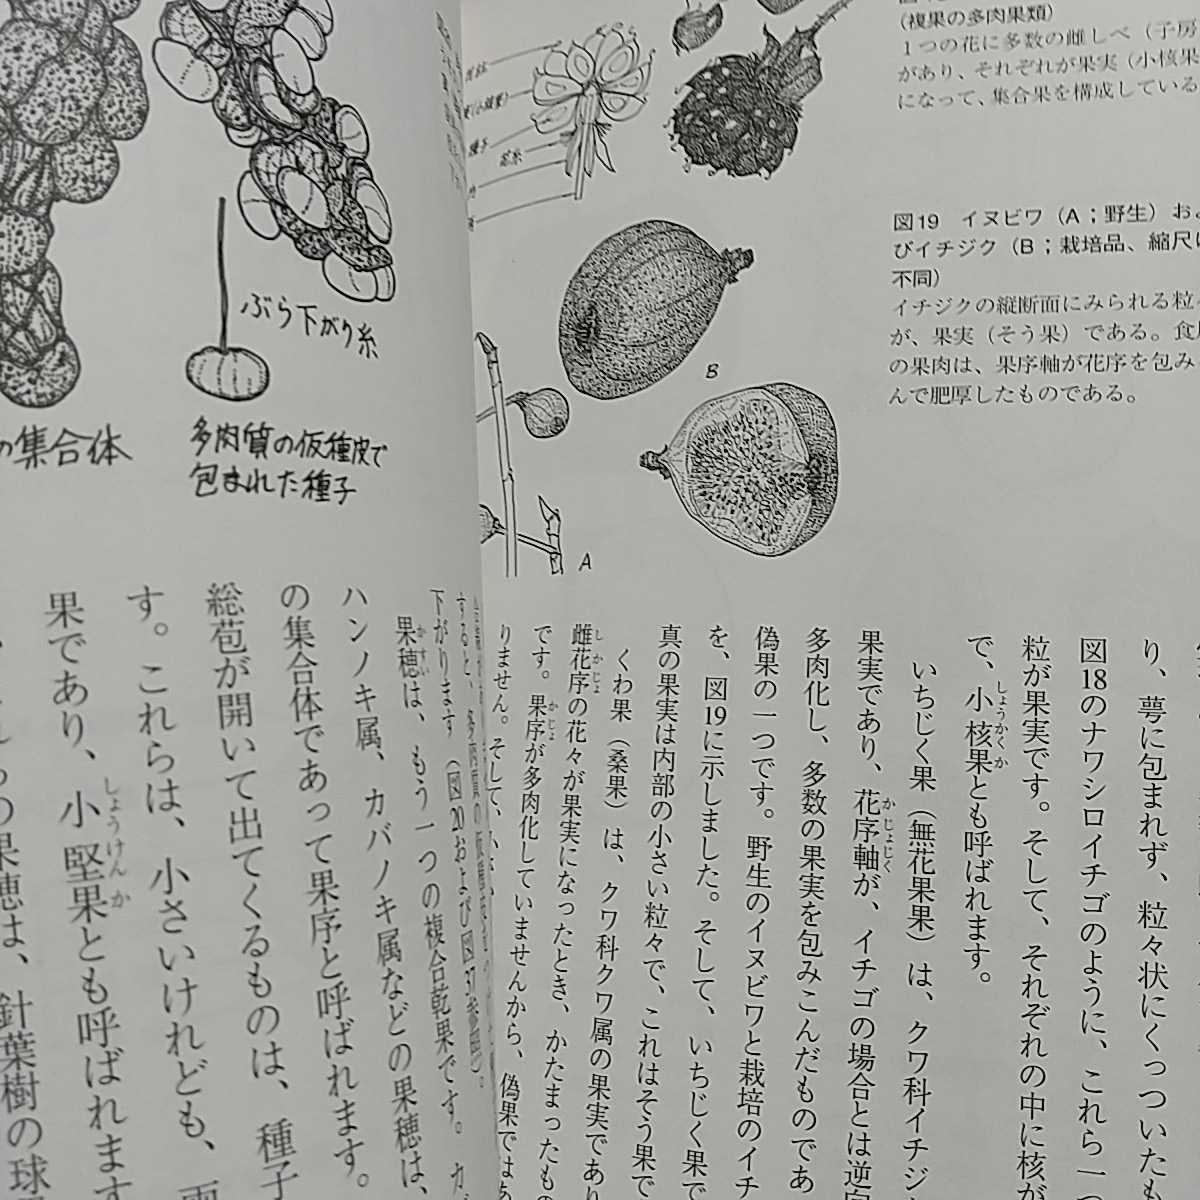 (複果の多肉果類)
1つの花に多数の雌しべ(子房
があり、それぞれが果実(小核果
になって、集合果を構成している
種子
花糸
図19 イヌビワ(A;野生)およ
びイチジク(B;栽培品、縮尺は
不同)
イチジクの縦断面にみられる粒々
が、果実(そう果)である。食用
の果肉は、果序軸が花序を包みこ
んで肥厚したものである。
B
A
り、萼に包まれず、粒々状にくっついたも
図18のナワシロイチゴのように、これら一つ
粒が果実です。そして、それぞれの中に核が
で、小核果とも呼ばれます。
しょうかくか
いちじく果(無花果果)は、クワ科イチジ
果実であり、花序軸が、イチゴの場合とは逆
かじょじく
多肉化し、多数の果実を包みこんだものであ
偽果の一つです。野生のイヌビワと栽培のイチ
を、図19に示しました。そして、いちじく果で
真の果実は内部の小さい粒々で、これはそう果で
くわ果(桑果)は、クワ科クワ属の果実であり
雌花序の花々が果実になったとき、かたまったもの
しかじょ
です。果序が多肉化していませんから、偽果ではあ
かじょ
りません。そして、
ぶら下がり糸
の集合体
多肉質の仮種皮で
包まれた種子
すると、多肉質の仮種皮
下がります(図20および図37参照)。
果穂は、もう一つの複合乾果です。カ
かすい
ハンノキ属、カバノキ属などの果穂は、
の集合体であって果序と呼ばれます。
総苞が開いて出てくるものは、種子
す。これらは、小さいけれども、両
果であり、小堅果とも呼ばれます
しょうけんか
の果穂は、針葉樹の球